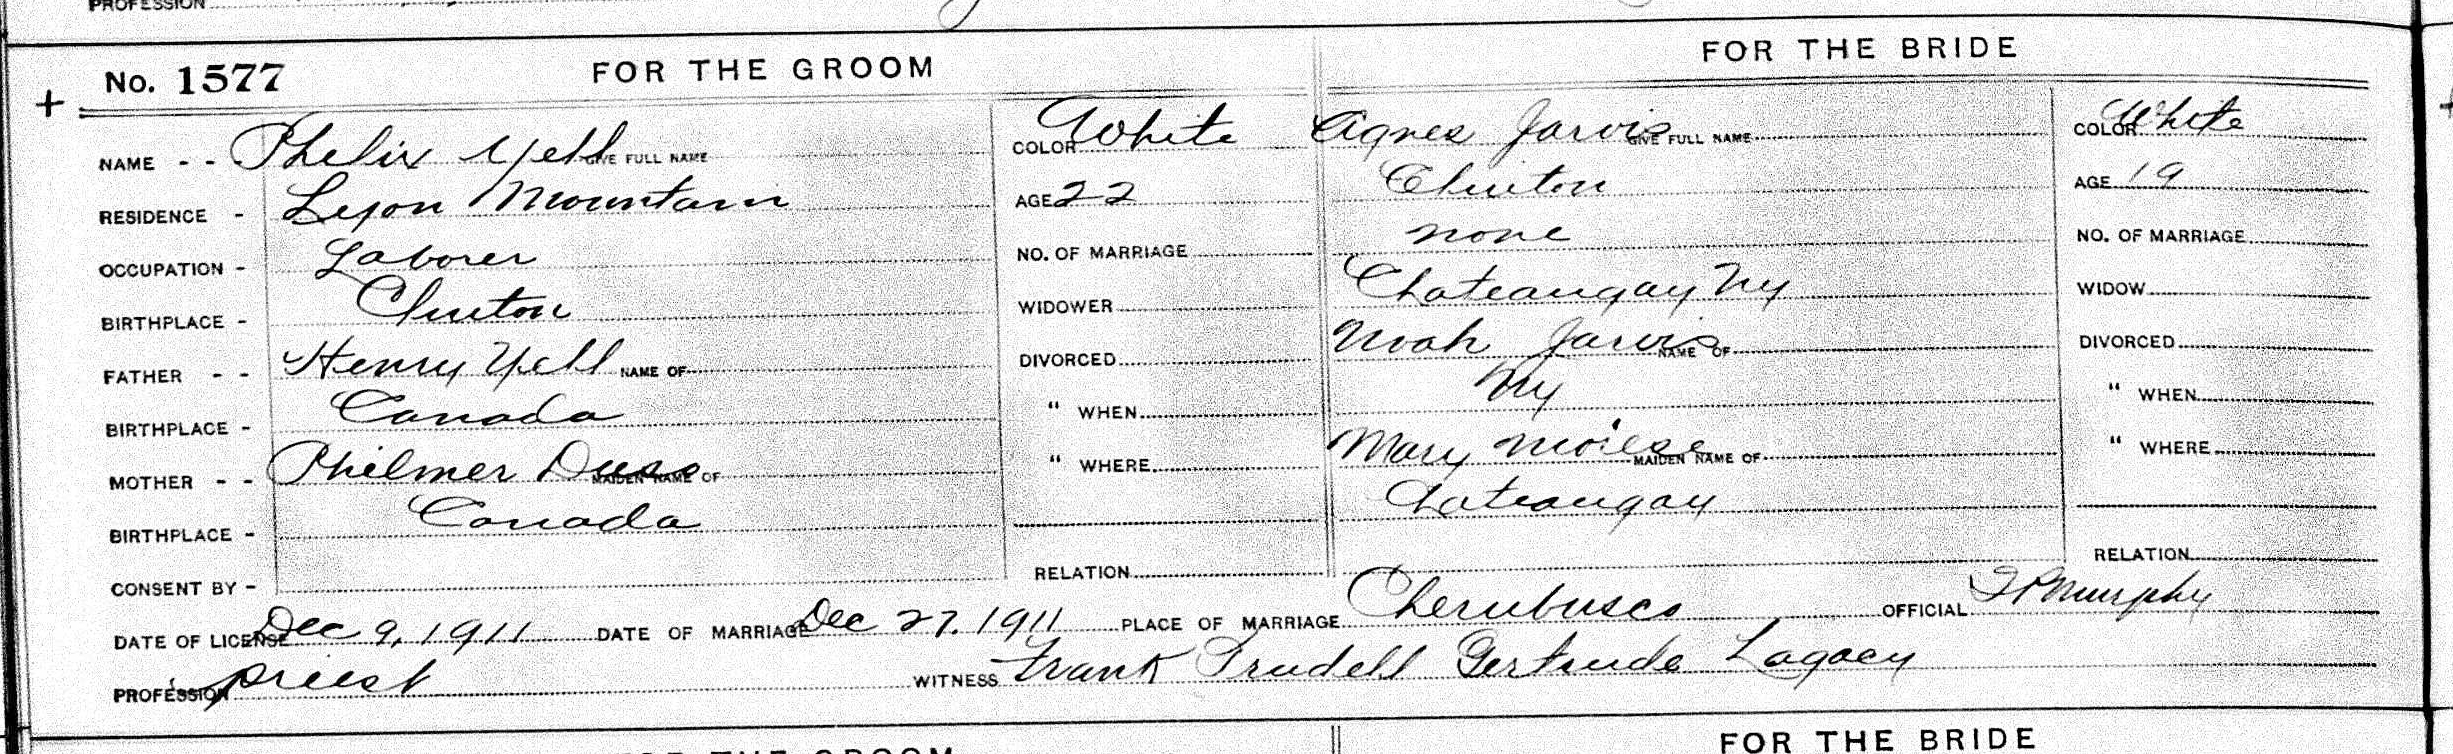 PROFESSION
No. 1577 FOR THE GROOM FOR THE BRIDE
NAME - - Phelix Yell GIVE FULL NAME COLOR White Agnes Jarvis GIVE FULL NAME COLOR White
RESIDENCE - Lyon Mountain AGE 22 Clinton AGE 19
OCCUPATION - Laborer NO. OF MARRIAGE none NO. OF MARRIAGE
BIRTHPLACE - Clinton WIDOWER Chateaugay Ny WIDOW
FATHER - - Henry Yell NAME OF DIVORCED Noah Jarvis NAME OF DIVORCED
BIRTHPLACE - Canada " WHEN Ny " WHEN
MOTHER - - Philmer MAIDEN NAME OF " WHERE Mary MAIDEN NAME OF " WHERE
BIRTHPLACE - Canada Chateaugay
CONSENT BY - RELATION RELATION
DATE OF LICENSE Dec 9, 1911 DATE OF MARRIAGE Dec 27. 1911 PLACE OF MARRIAGE Cherubusco OFFICIAL Murphy
PROFESSION priest WITNESS Frank Trudell Gertrude Lagacy
FOR THE GROOM FOR THE BRIDE